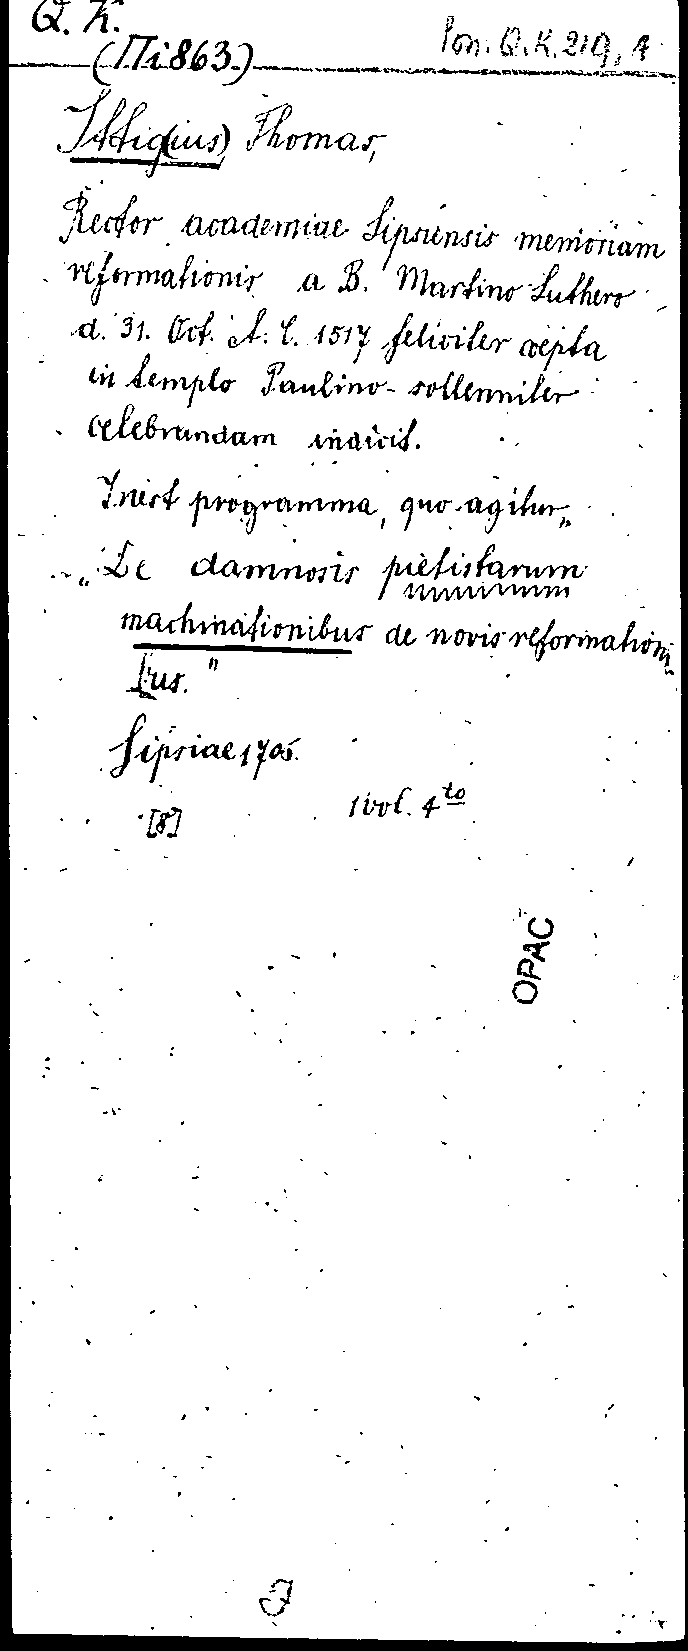 Q. K.
(Πi 863.)
Pon. Q. K. 219, 4
Ittig(ius), Thomas,
Rector academiae Lipsiensis memoriam
reformationis a B. Martino Luthero
d. 31. Oct. A. C. 1517 feliciter coepta
in templo Paulino sollenniter
celebrandam indicit.
Inest programma, quo agitur„
„De damnosis pietistarum
machinationibus de novis reformationi-
bus."
Lipsiae 1705.
[8] 1 vol. 4to
OPAC